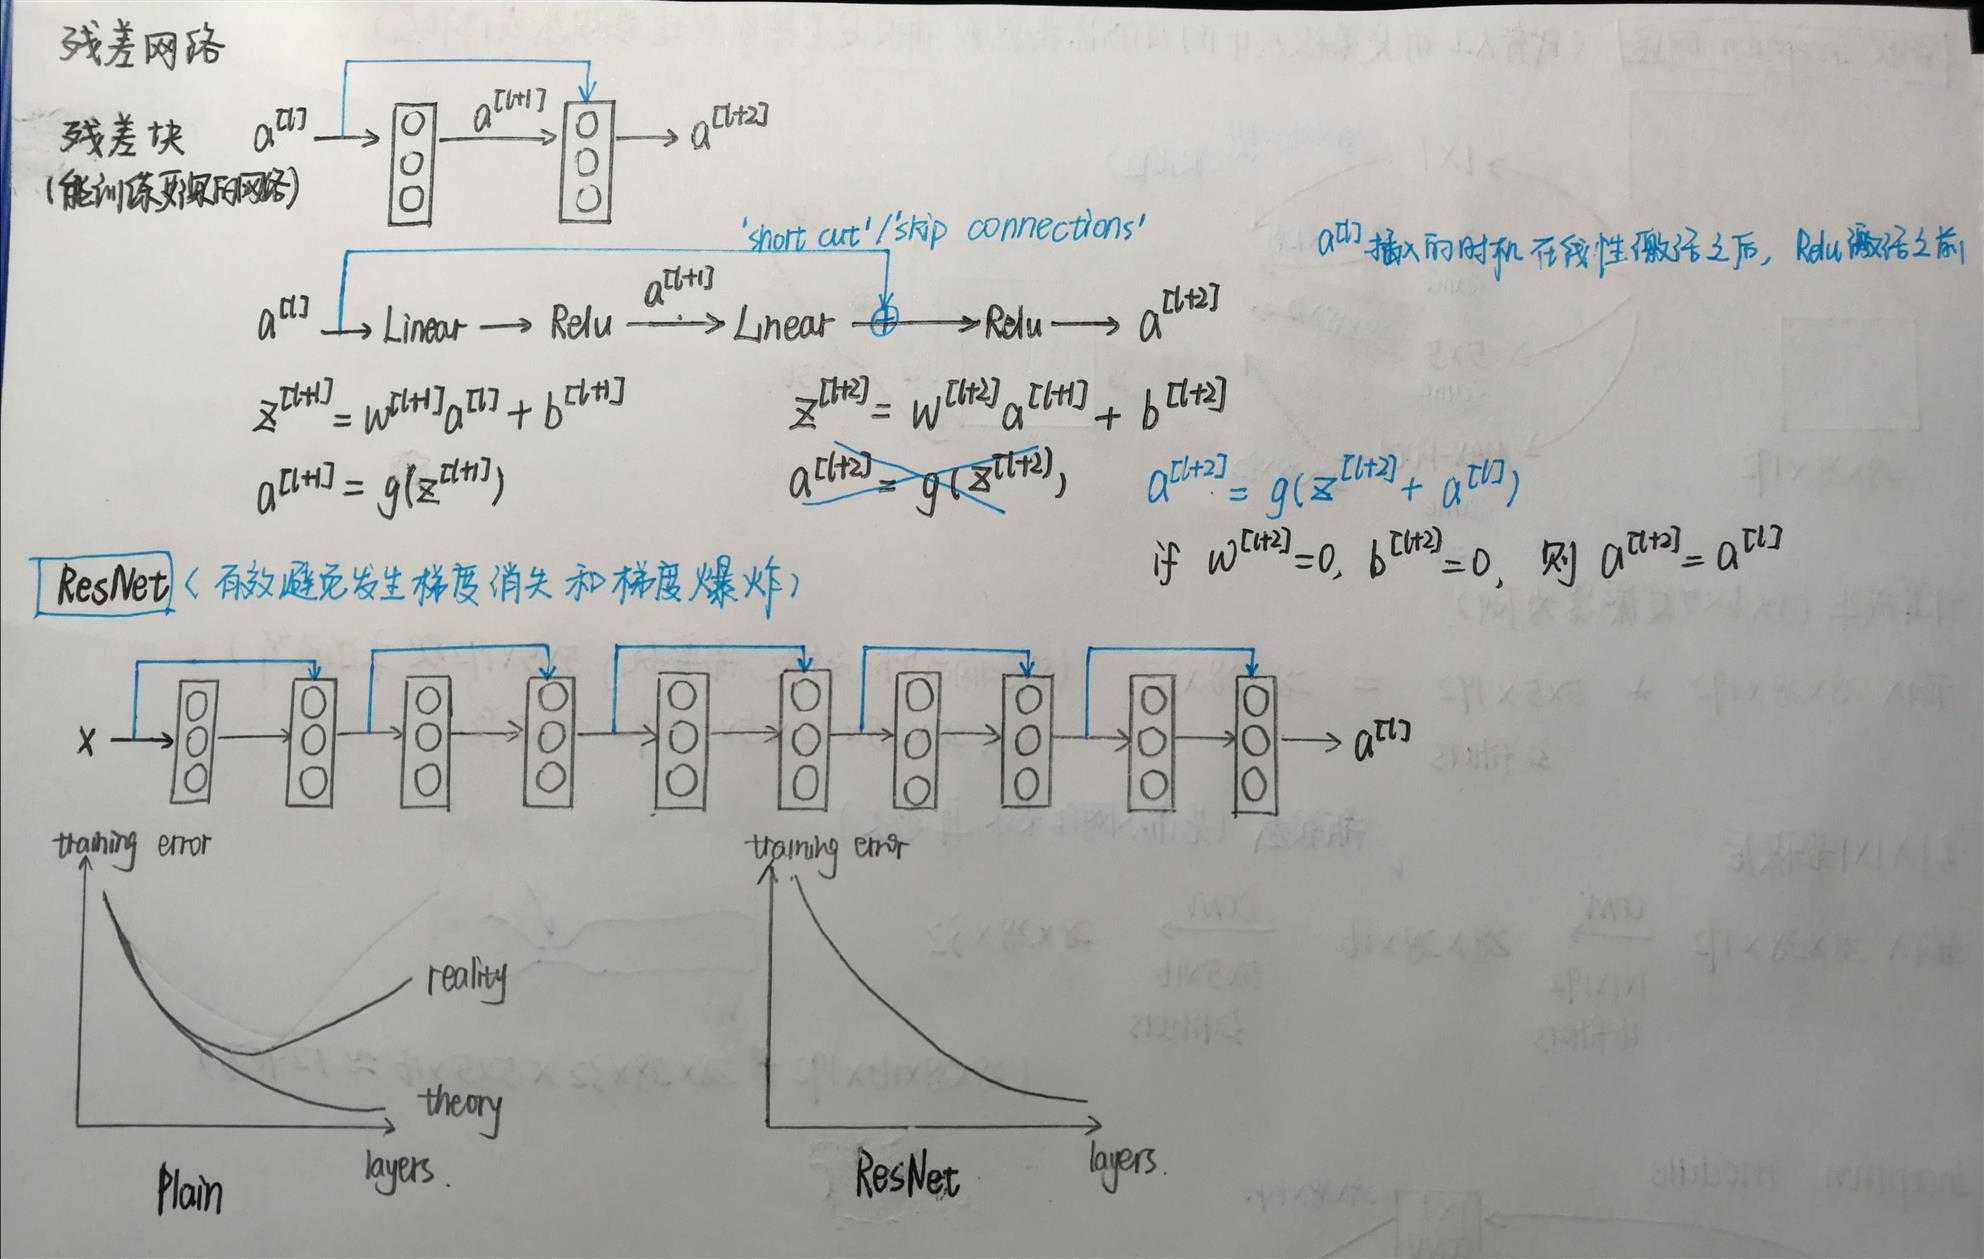 残差网络
残差块 a^[l] a^[l+1] a^[l+2]
(能训练更深的网络)
'short cut'/'skip connections'
a^[l]插入的时机在线性激活之后, Relu激活之前
a^[l] → Linear → Relu a^[l+1] → Linear ⊕ → Relu → a^[l+2]
z^[l+1] = w^[l+1] a^[l] + b^[l+1] z^[l+2] = w^[l+2] a^[l+1] + b^[l+2]
a^[l+1] = g(z^[l+1]) a^[l+2] = g(z^[l+2]) a^[l+2] = g(z^[l+2] + a^[l])
if w^[l+2]=0, b^[l+2]=0, 则 a^[l+2] = a^[l]
ResNet (有效避免发生梯度消失和梯度爆炸)
x a^[l]
training error training error
reality
theory
layers. layers.
Plain ResNet